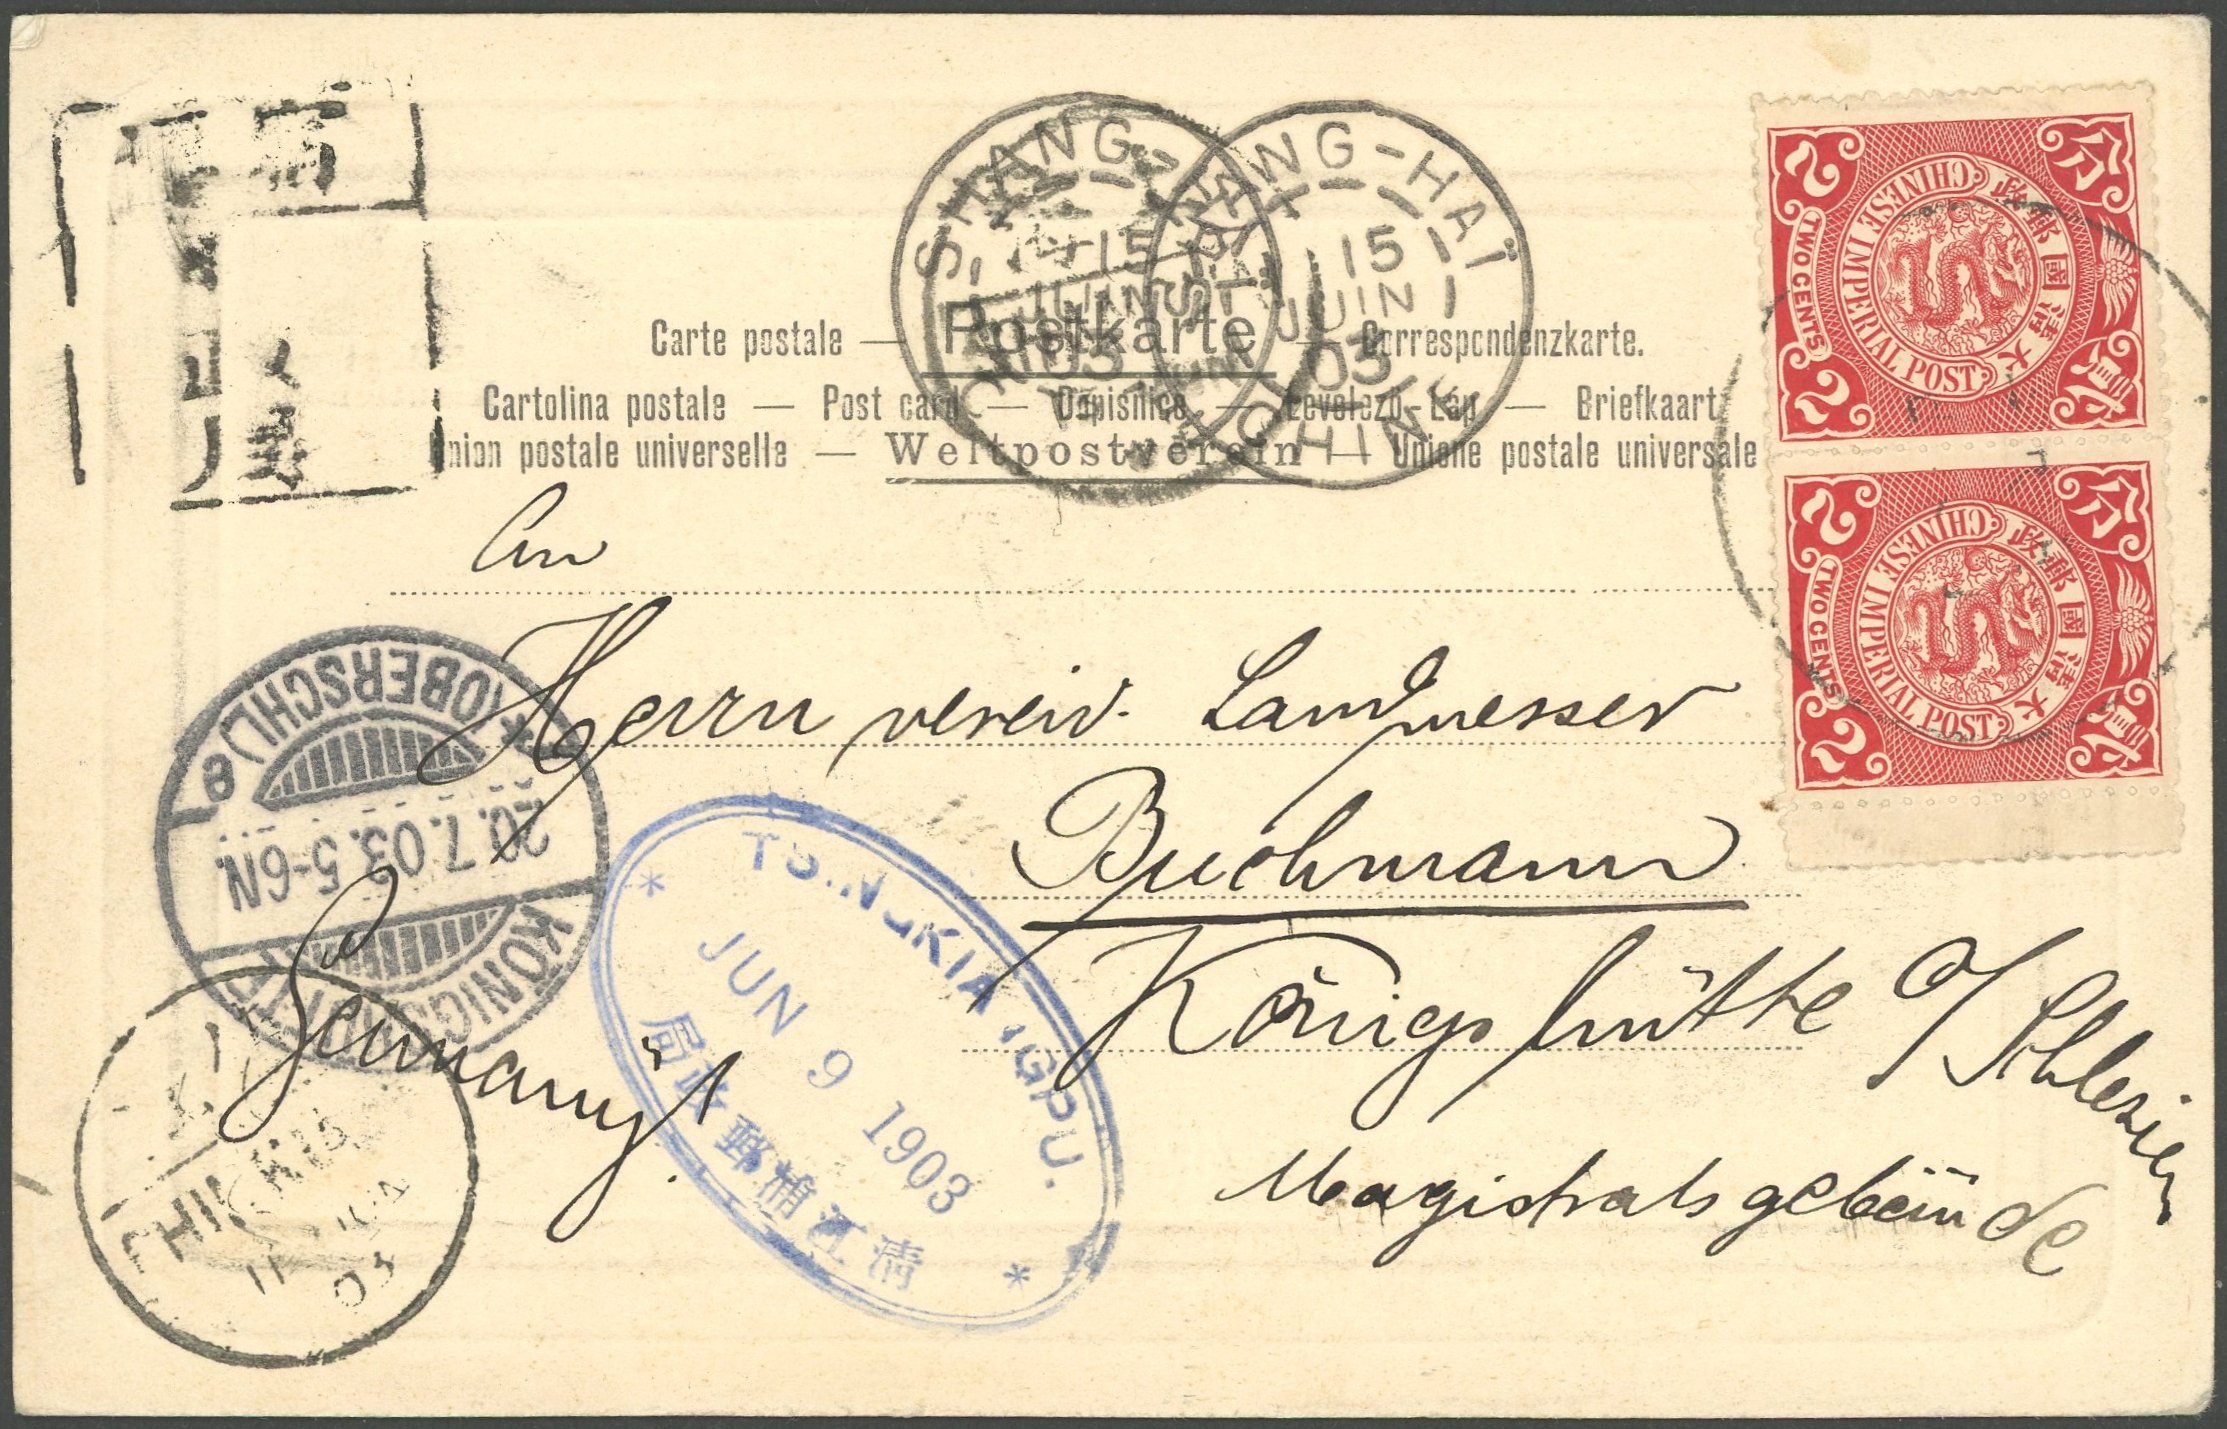 SHANG-HAÏ
15
JUIN
03
CHINE
SHANG-HAÏ
15
JUIN
03
CHINE
Carte postale — Postkarte — Correspondenzkarte.
Cartolina postale — Post card — Dopisnice — Levelező-Lap — Briefkaart
Union postale universelle — Weltpostverein — Unione postale universale
2 分
CHINESE IMPERIAL POST
大清國郵政
TWO CENTS
2 貳
2 分
CHINESE IMPERIAL POST
大清國郵政
TWO CENTS
2 貳
An
Herrn vereid. Landmesser
Buchmann
Königshütte O/Schlesien
Magistratsgebäude
Germany.
KÖNIGSHÜTTE
20.7.03.5-6N.
* (OBERSCHL) e
TSINGKIANGPU.
JUN 9 1903
清江浦郵政局
* *
CHINKIANG
11
03